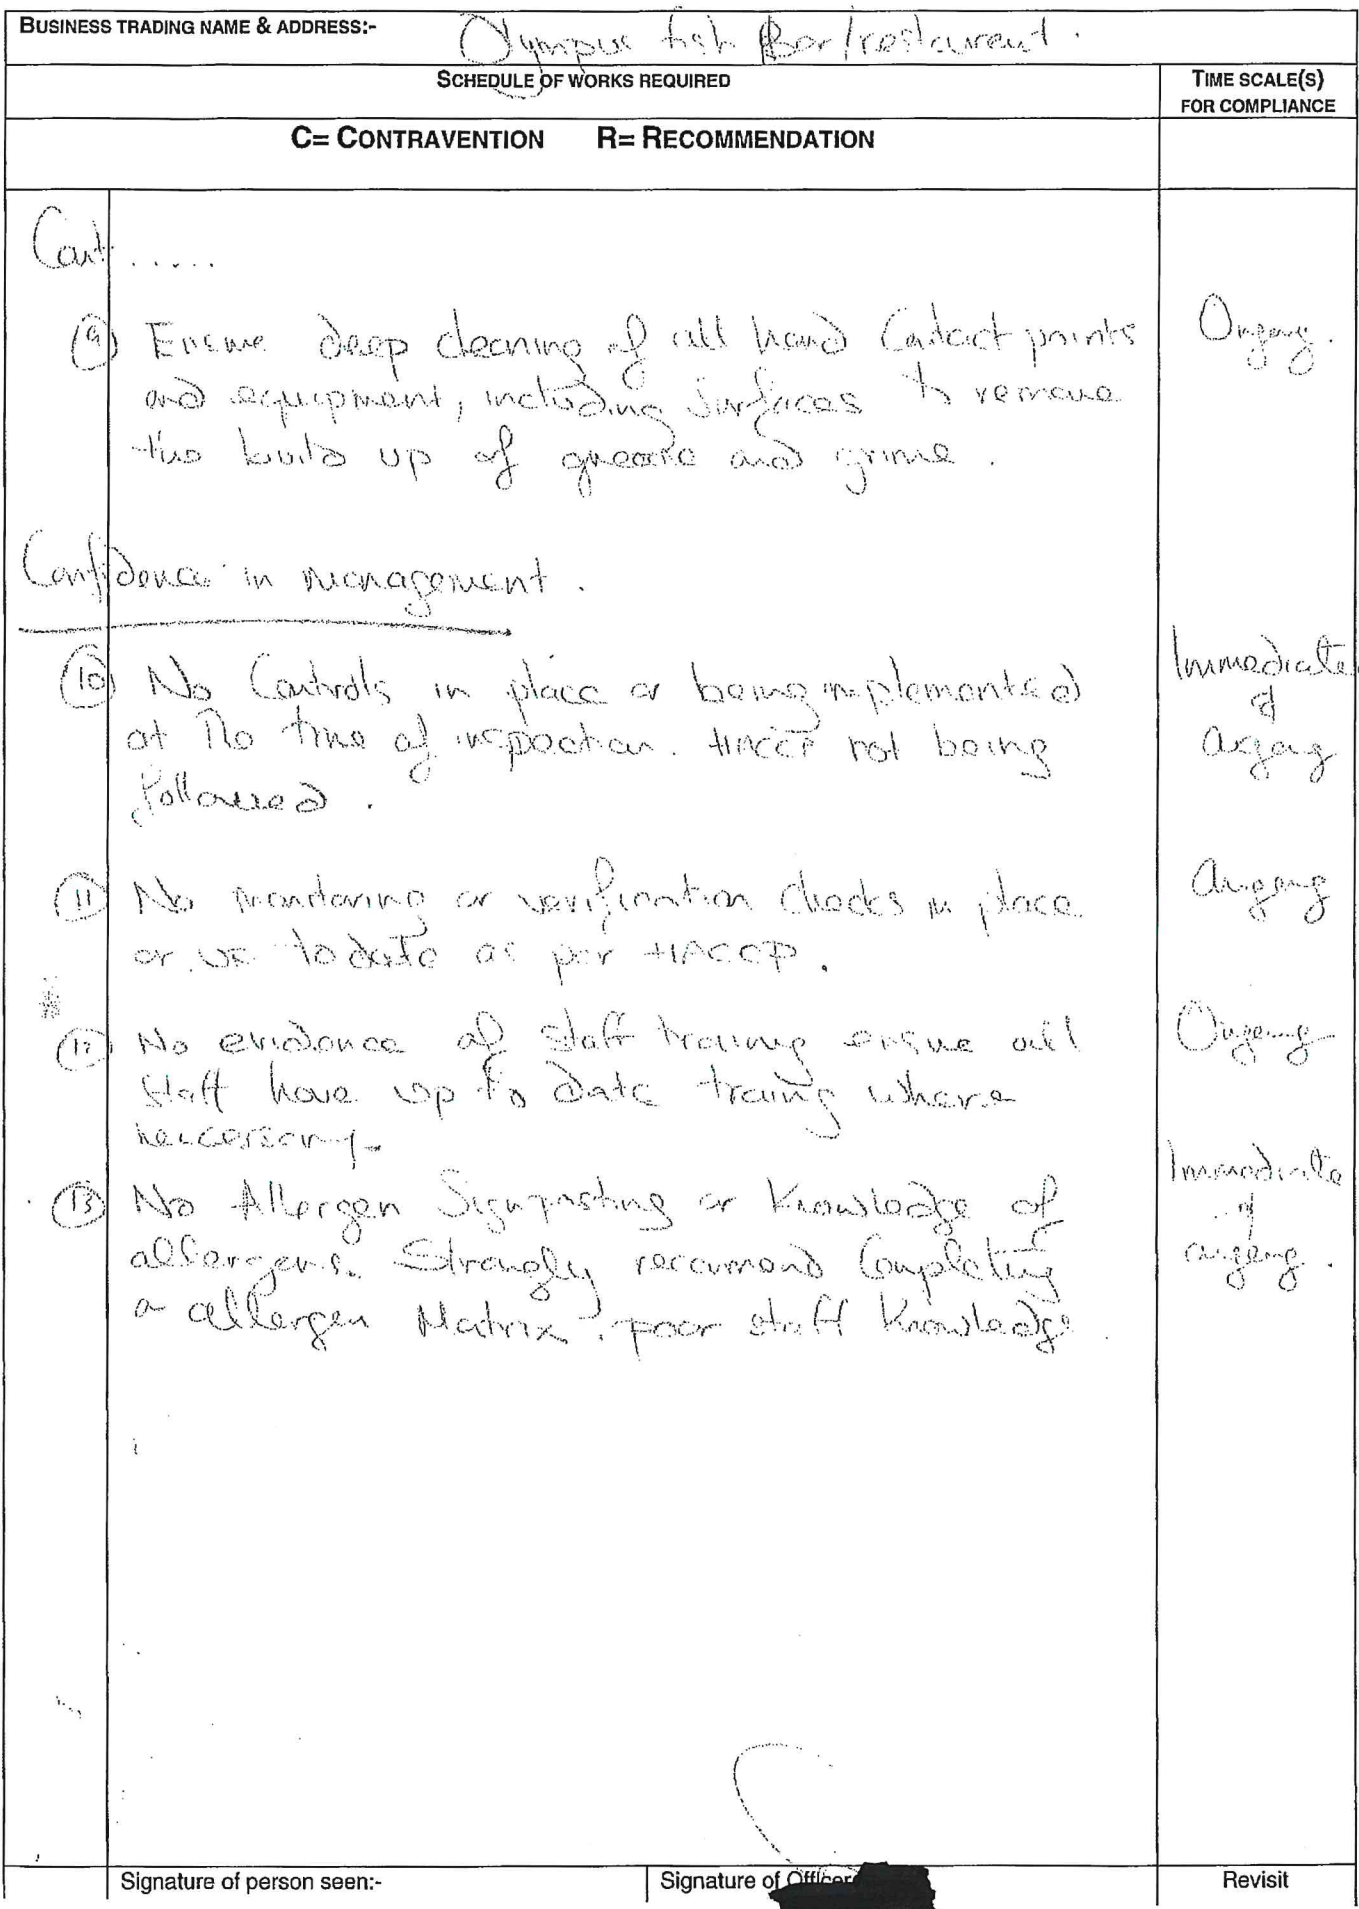 BUSINESS TRADING NAME & ADDRESS:- Olympus fish Bar/restaurent.
SCHEDULE OF WORKS REQUIRED
TIME SCALE(S)
FOR COMPLIANCE
C= CONTRAVENTION R= RECOMMENDATION
Cont.....
(9) Ensure deep cleaning of all hand Contact points Ongoing.
and equipment, including surfaces to remove
the build up of grease and grime.
Confidence in management.
(10) No Controls in place or being implemented Immediate
at the time of inspection. HACCP not being & ongoing
followed.
(11) No monitoring or verification checks in place Ongoing
or up to date as per HACCP.
(12) No evidence of staff training ensure all Ongoing
staff have up to date traing where
neccessary.
(13) No Allergen Signposting or Knowledge of Immediate
allergens. Strongly recommend Completing & ongoing.
a allergen Matrix. poor staff Knowledge.
Signature of person seen:- Signature of Officer Revisit